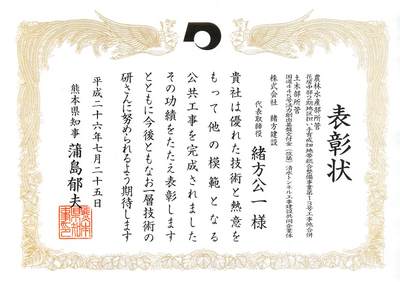 表彰状
農林水産部所管
土木部所管
株式会社 緒方建設
代表取締役 緒方公一様
貴社は優れた技術と熱意を
もって他の模範となる
公共工事を完成されました
その功績をたたえ表彰します
とともに今後ともなお一層技術の
研さんに努められるよう期待します
平成二十六年七月二十五日
熊本県知事 蒲島郁夫